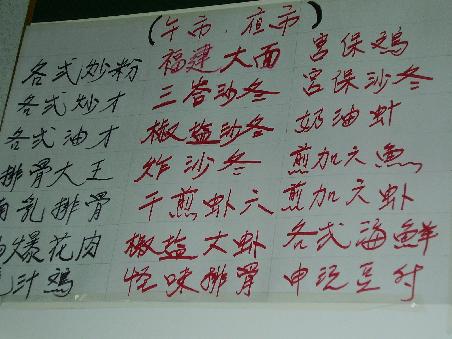 (午市.夜市)
各式炒粉 福建大面 宫保鸡
各式炒才 三答沙冬 宫保沙冬
各式油才 椒盐沙冬 奶油虾
排骨大王 炸沙冬 煎加六魚
南乳排骨 干煎虾六 煎加六虾
爆花肉 椒盐大虾 各式海鮮
汁鸡 怪味排骨 申沅豆付